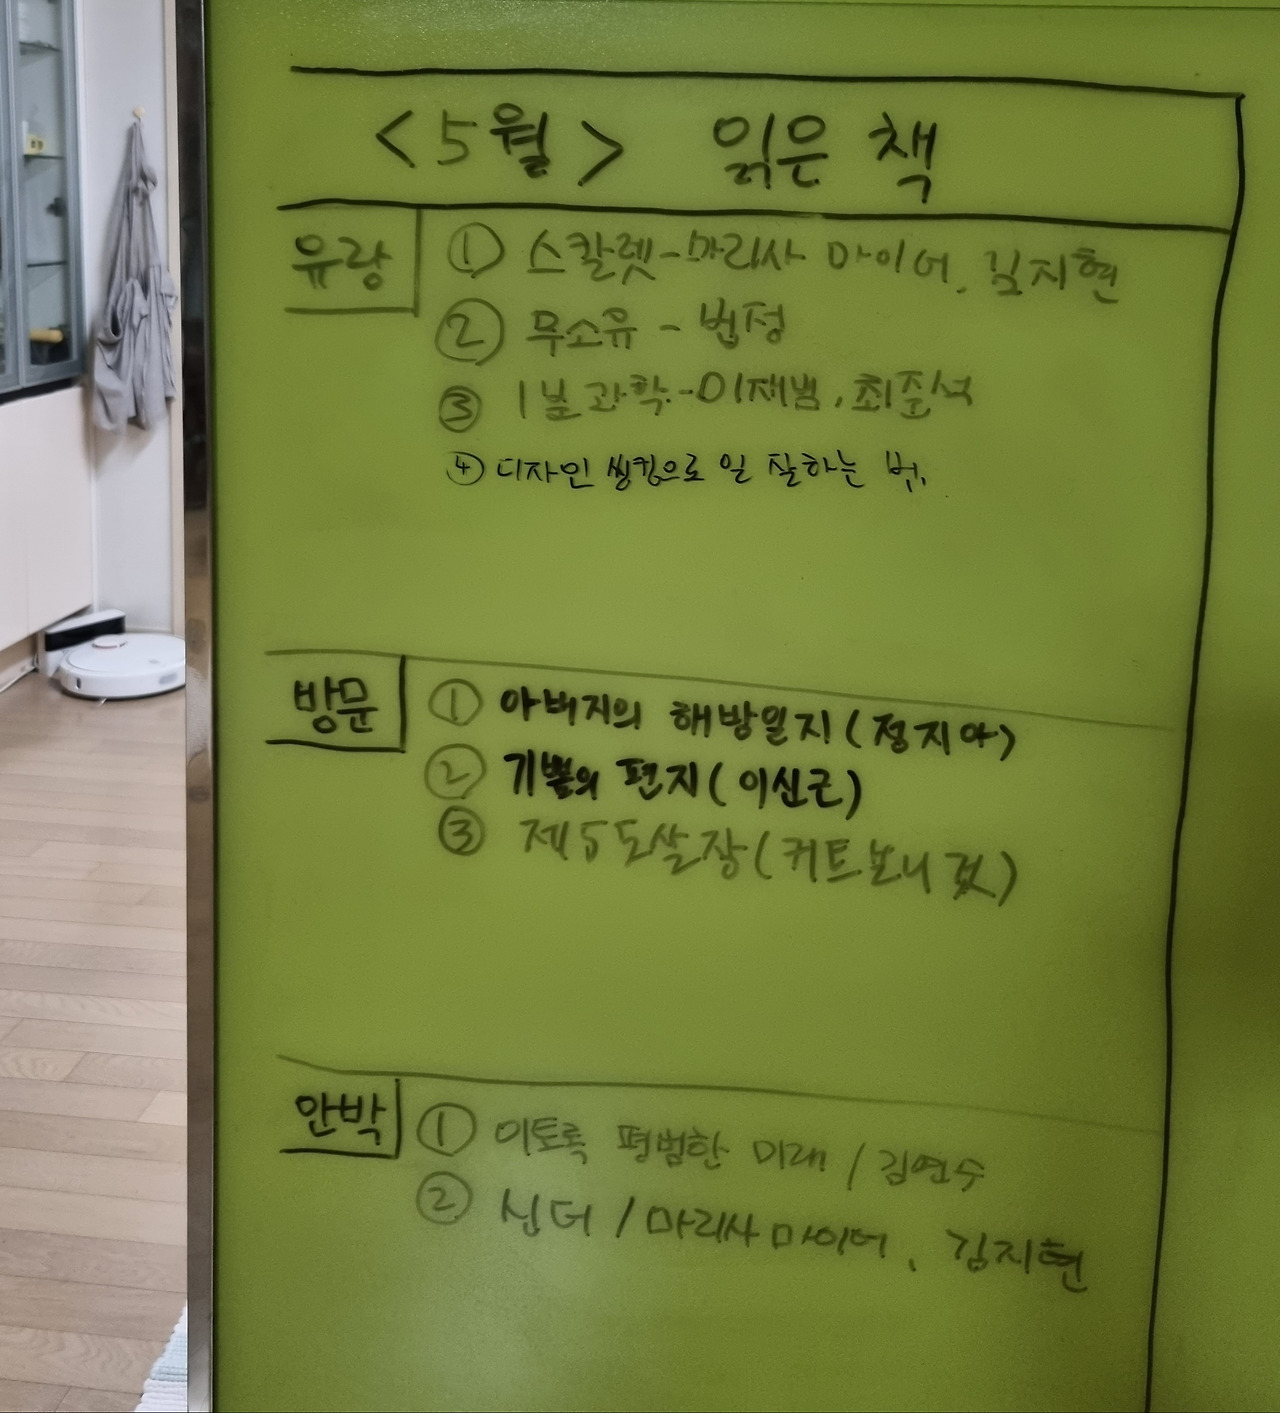 <5월> 읽은 책
유랑 ① 스칼렛-마리사 마이어, 김지현
② 무소유 - 법정
③ 1분과학-이재범, 최준석
④ 디자인 씽킹으로 일 잘하는 법.
방문 ① 아버지의 해방일지(정지아)
② 기쁨의 편지(이신근)
③ 제5도살장(커트보니것)
안박 ① 이토록 평범한 미래 / 김연수
② 신더 / 마리사 마이어, 김지현